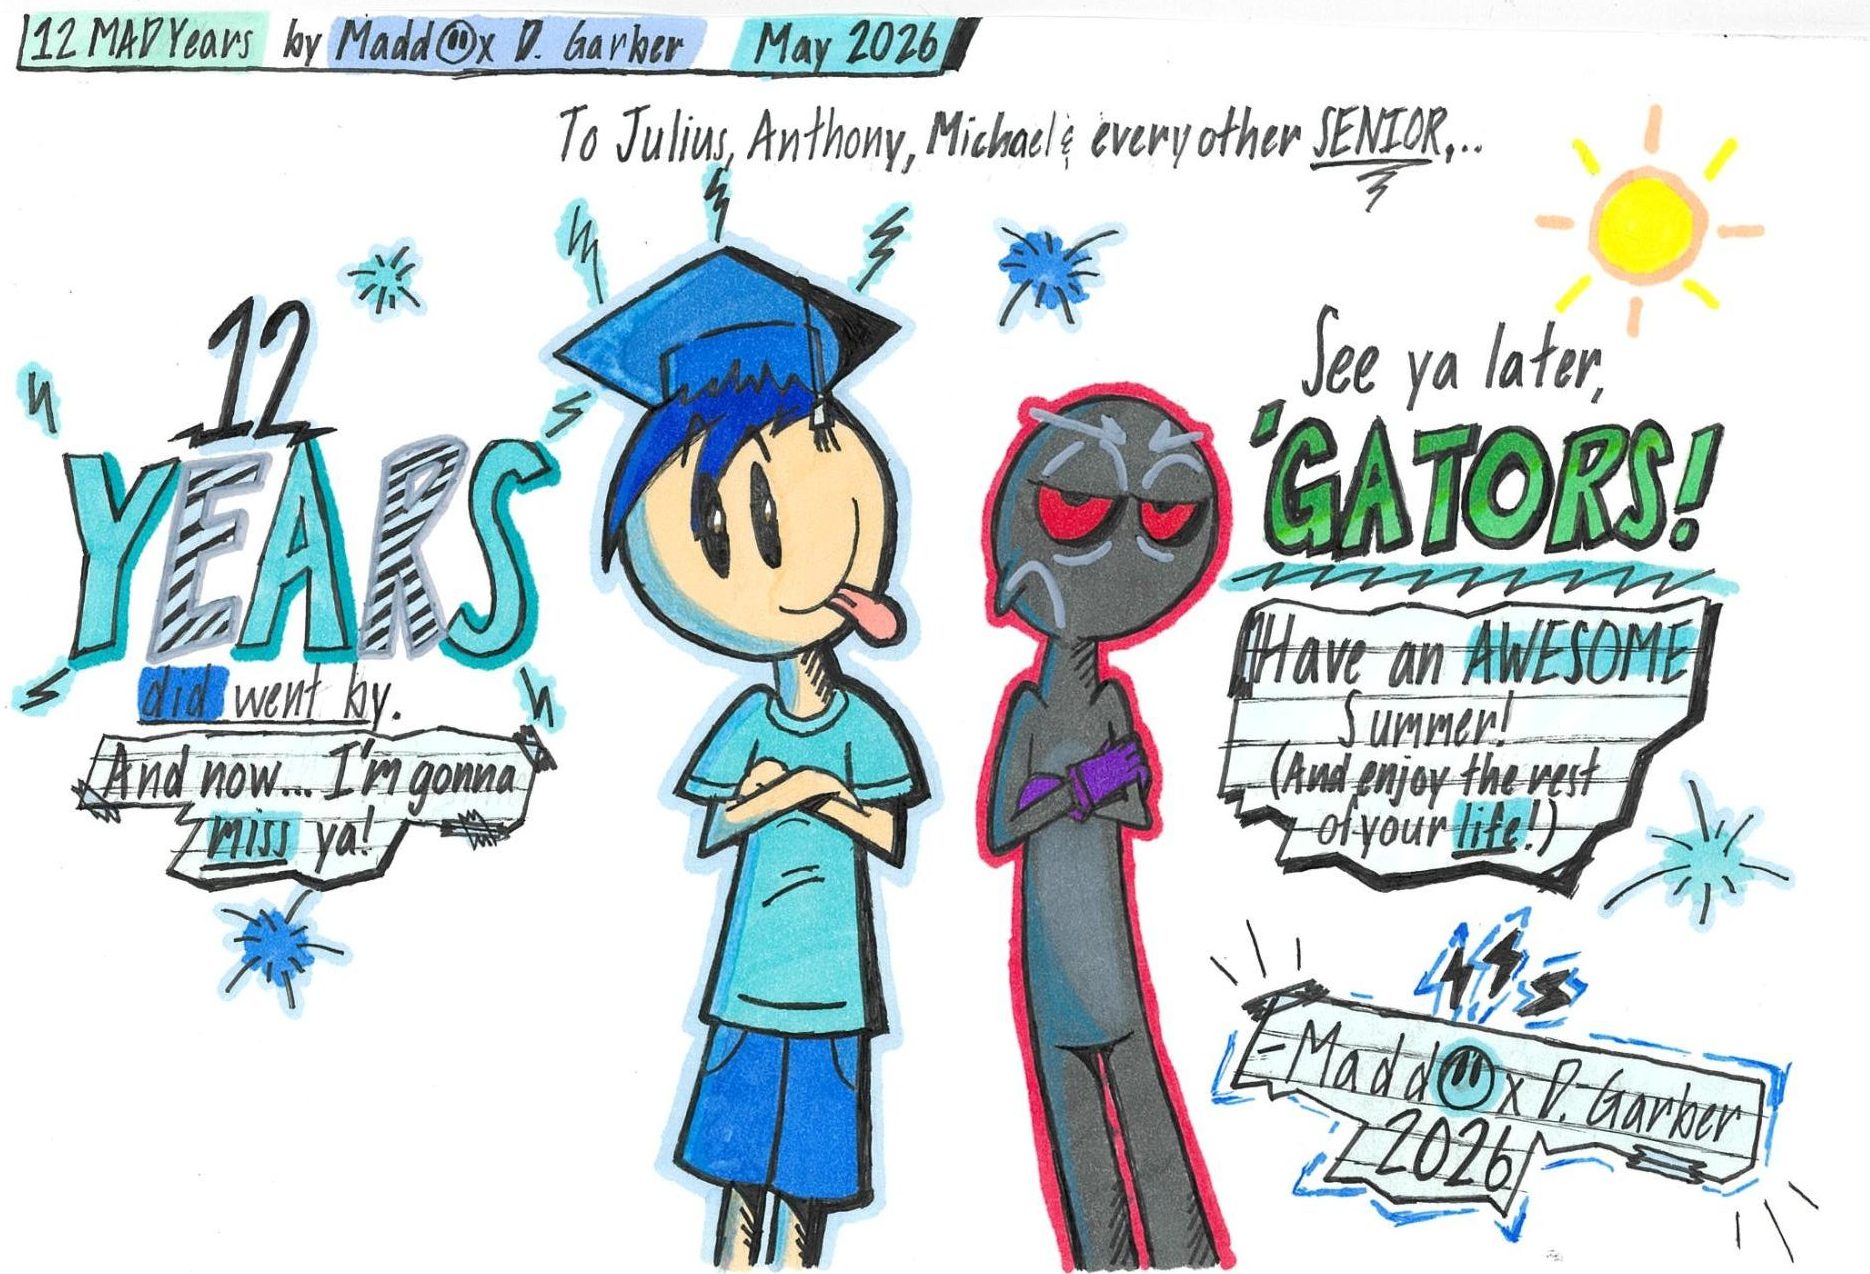 12 MAD Years by Maddox D. Garber May 2026
To Julius, Anthony, Michael & every other SENIOR,..
12
YEARS
did went by.
And now... I'm gonna
miss ya!
See ya later,
'GATORS!
Have an AWESOME
Summer!
(And enjoy the rest
of your life!)
-Maddox D. Garber
2026